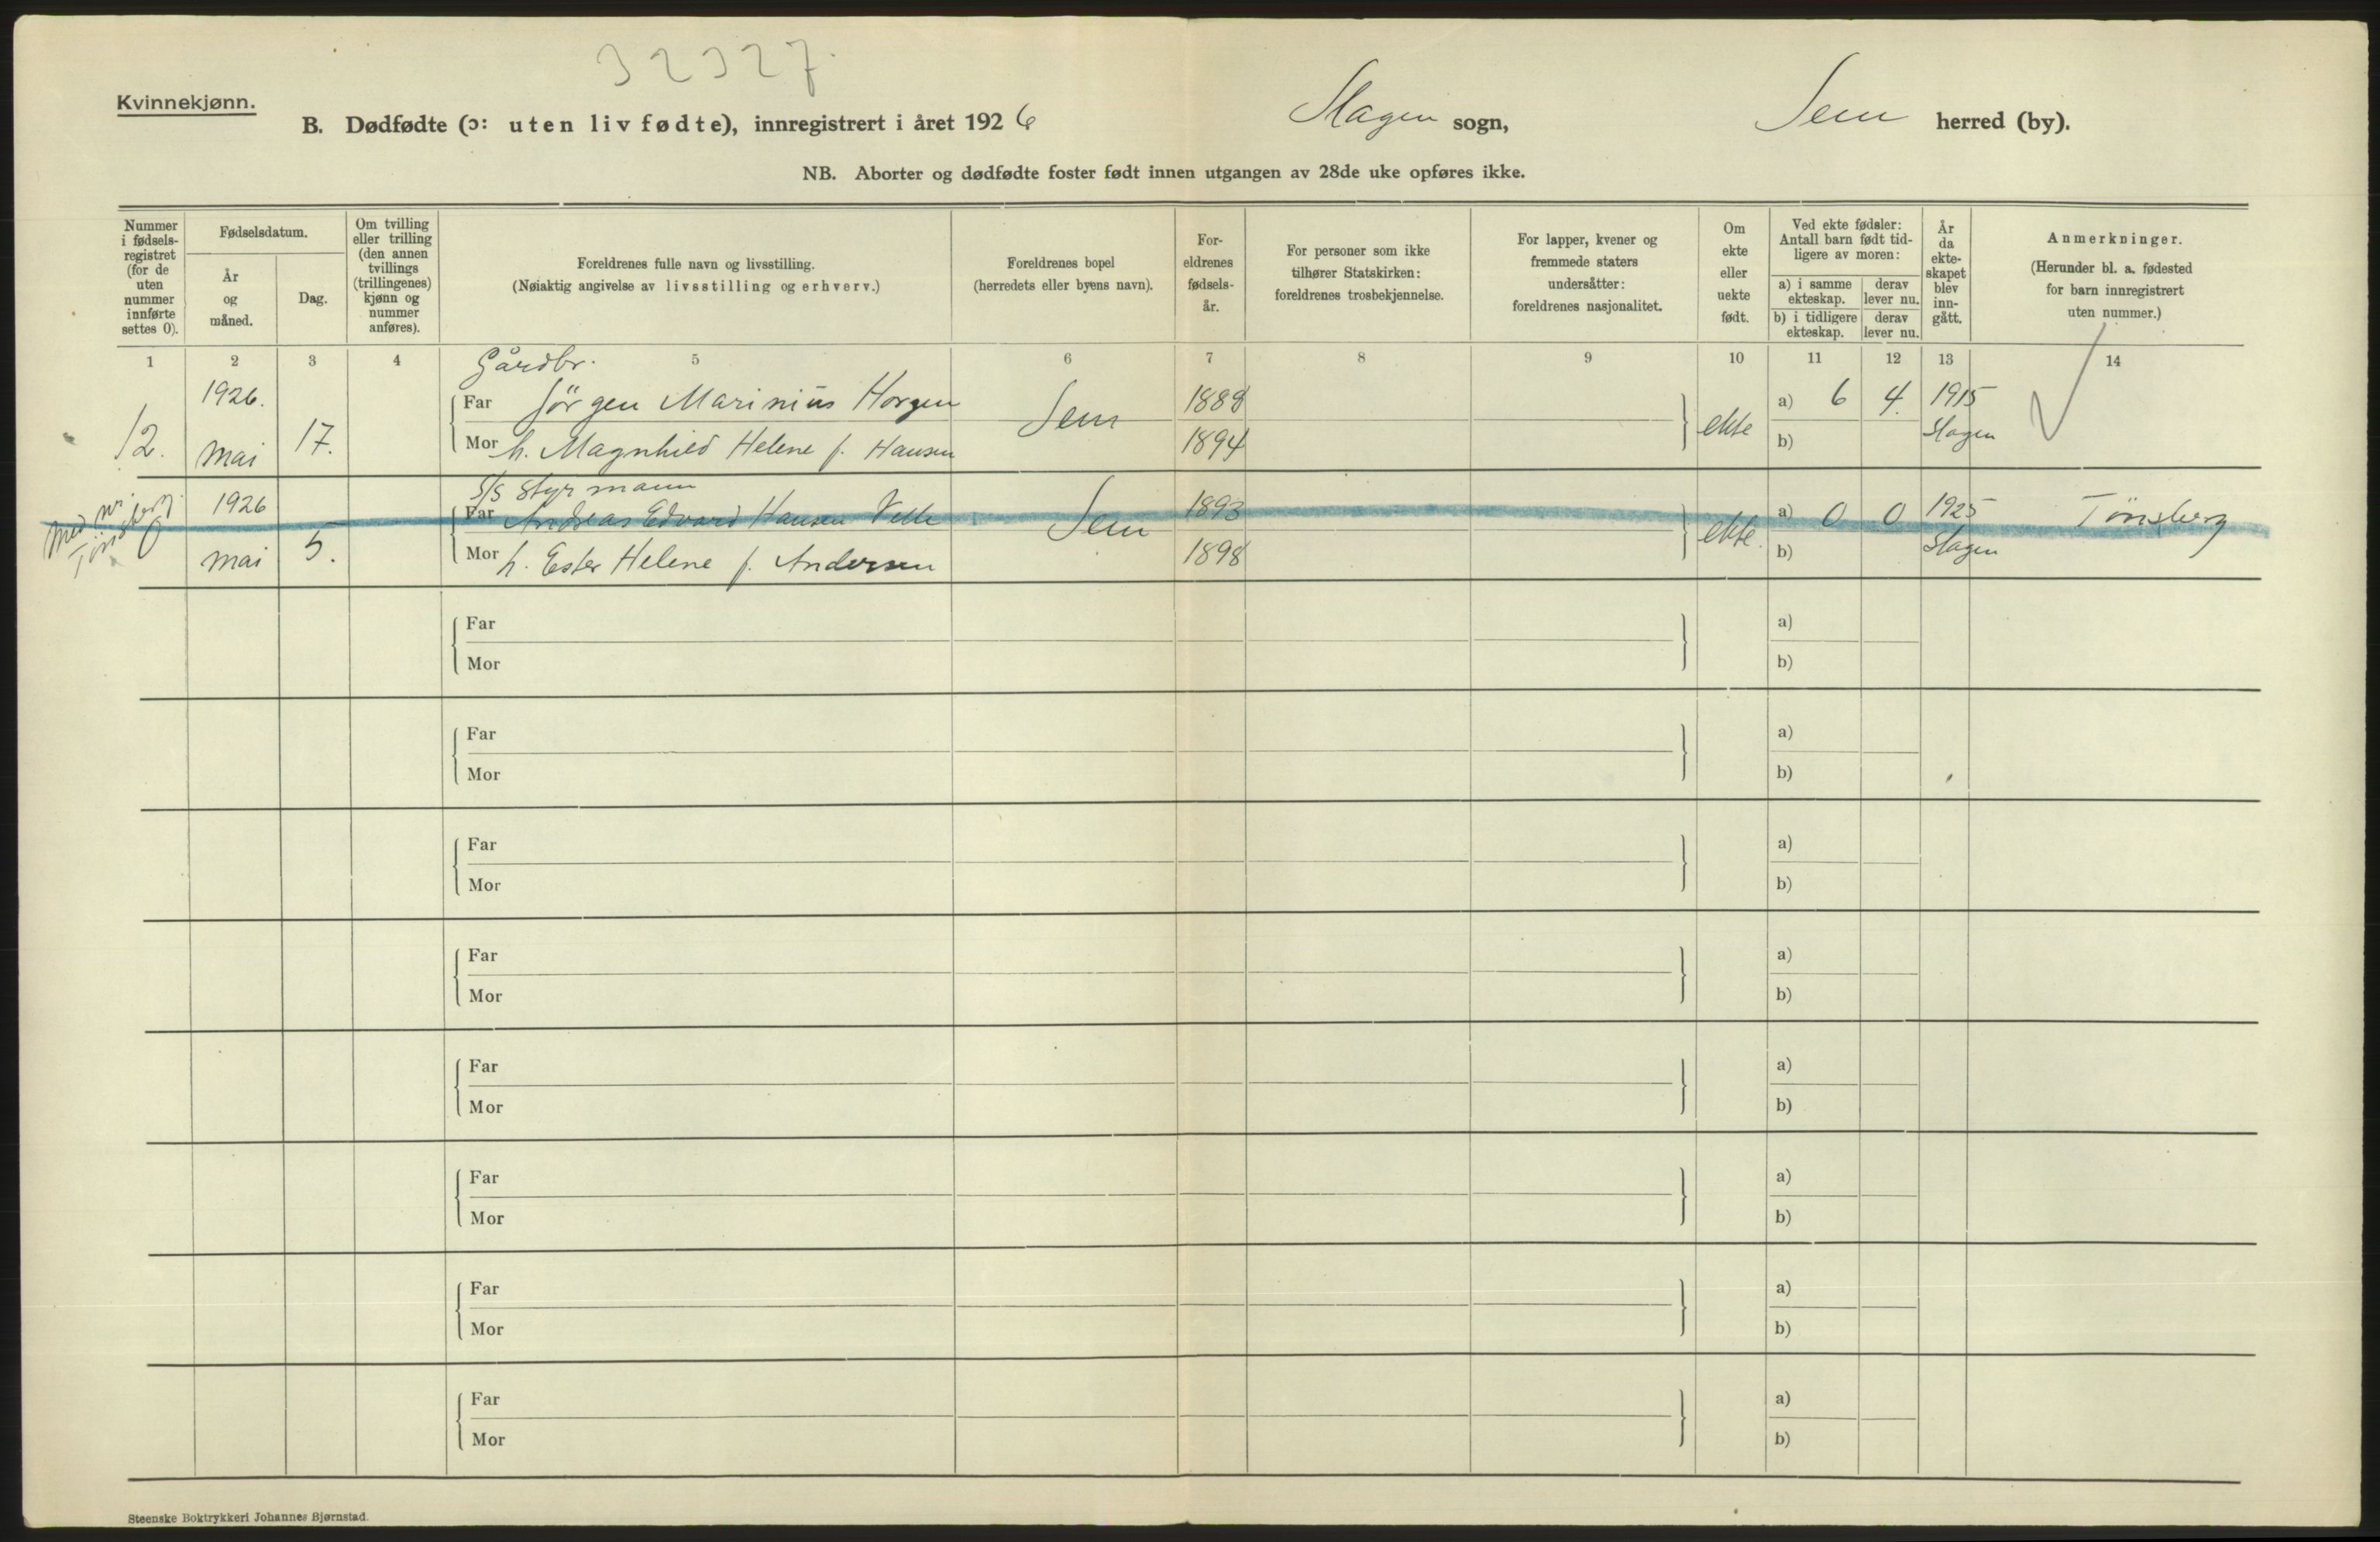 32327.
Kvinnekjønn.
B. Dødfødte (ɔ: uten liv fødte), innregistrert i året 1926 Slagen sogn, Sem herred (by).
NB. Aborter og dødfødte foster født innen utgangen av 28de uke opføres ikke.
Nummer
i fødsels-
registret
(for de
uten
nummer
innførte
settes 0).
Fødselsdatum.
År
og
måned.
Dag.
Om tvilling
eller trilling
(den annen
tvillings
(trillingenes)
kjønn og
nummer
anføres).
Foreldrenes fulle navn og livsstilling.
(Nøiaktig angivelse av livsstilling og erhverv.)
Foreldrenes bopel
(herredets eller byens navn).
For-
eldrenes
fødsels-
år.
For personer som ikke
tilhører Statskirken:
foreldrenes trosbekjennelse.
For lapper, kvener og
fremmede staters
undersåtter:
foreldrenes nasjonalitet.
Om
ekte
eller
uekte
født.
Ved ekte fødsler:
Antall barn født tid-
ligere av moren:
a) i samme
ekteskap.
derav
lever nu.
b) i tidligere
ekteskap.
derav
lever nu.
År
da
ekte-
skapet
blev
inn-
gått.
Anmerkninger.
(Herunder bl. a. fødested
for barn innregistrert
uten nummer.)
1 2 3 4 5 6 7 8 9 10 11 12 13 14
Gårdbr.
1926. Far Jörgen Marinius Horgen Sem 1888 a) 6 4. 1915
12. mai 17. Mor h. Magnhild Helene f. Hansen 1894 ekte b) Slagen
S/S Styrmann
med nr. 1926 Far Andreas Edvard Hansen Sem 1893 a) 0 0 1925 Tönsberg
Tönsberg 0 mai 5. Mor h. Ester Helene f. Andersen 1898 ekte. b) Slagen
Far a)
Mor b)
Far a)
Mor b)
Far a)
Mor b)
Far a)
Mor b)
Far a)
Mor b)
Far a)
Mor b)
Far a)
Mor b)
Far a)
Mor b)
Steenske Boktrykkeri Johannes Bjørnstad.